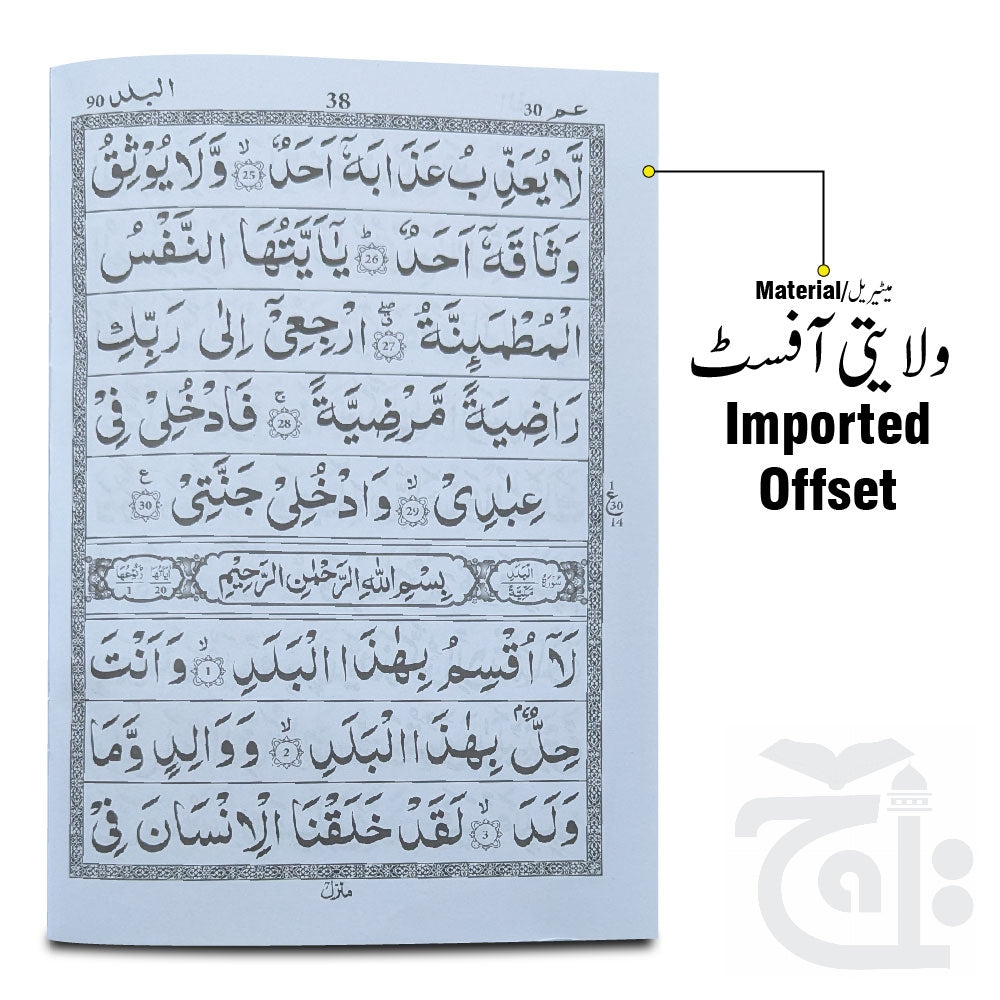 عم 30
38
البلد 90
لَّا يُعَذِّبُ عَذَابَهٗۤ اَحَدٌ ۙ 25 وَّلَا يُوْثِقُ
وَثَاقَهٗۤ اَحَدٌ ؕ 26 يٰۤاَيَّتُهَا النَّفْسُ
الْمُطْمَىِٕنَّةُ 27 ارْجِعِيْۤ اِلٰى رَبِّكِ
رَاضِيَةً مَّرْضِيَّةً ۚ 28 فَادْخُلِيْ فِيْ
عِبٰدِيْ ۙ 29 وَادْخُلِيْ جَنَّتِيْ ع 30
1
ع
30
14
سُوْرَةُ الْبَلَدِ مَكِّيَّةٌ
بِسْمِ اللّٰهِ الرَّحْمٰنِ الرَّحِيْمِ
اٰيَاتُهَا 20 رُكُوْعُهَا 1
لَاۤ اُقْسِمُ بِهٰذَا الْبَلَدِ ۙ 1 وَاَنْتَ
حِلٌّۢ بِهٰذَا الْبَلَدِ ۙ 2 وَوَالِدٍ وَّمَا
وَلَدَ ۙ 3 لَقَدْ خَلَقْنَا الْاِنْسَانَ فِيْ
منزل
Material/میٹیریل
ولایتی آفسٹ
Imported
Offset
تاج